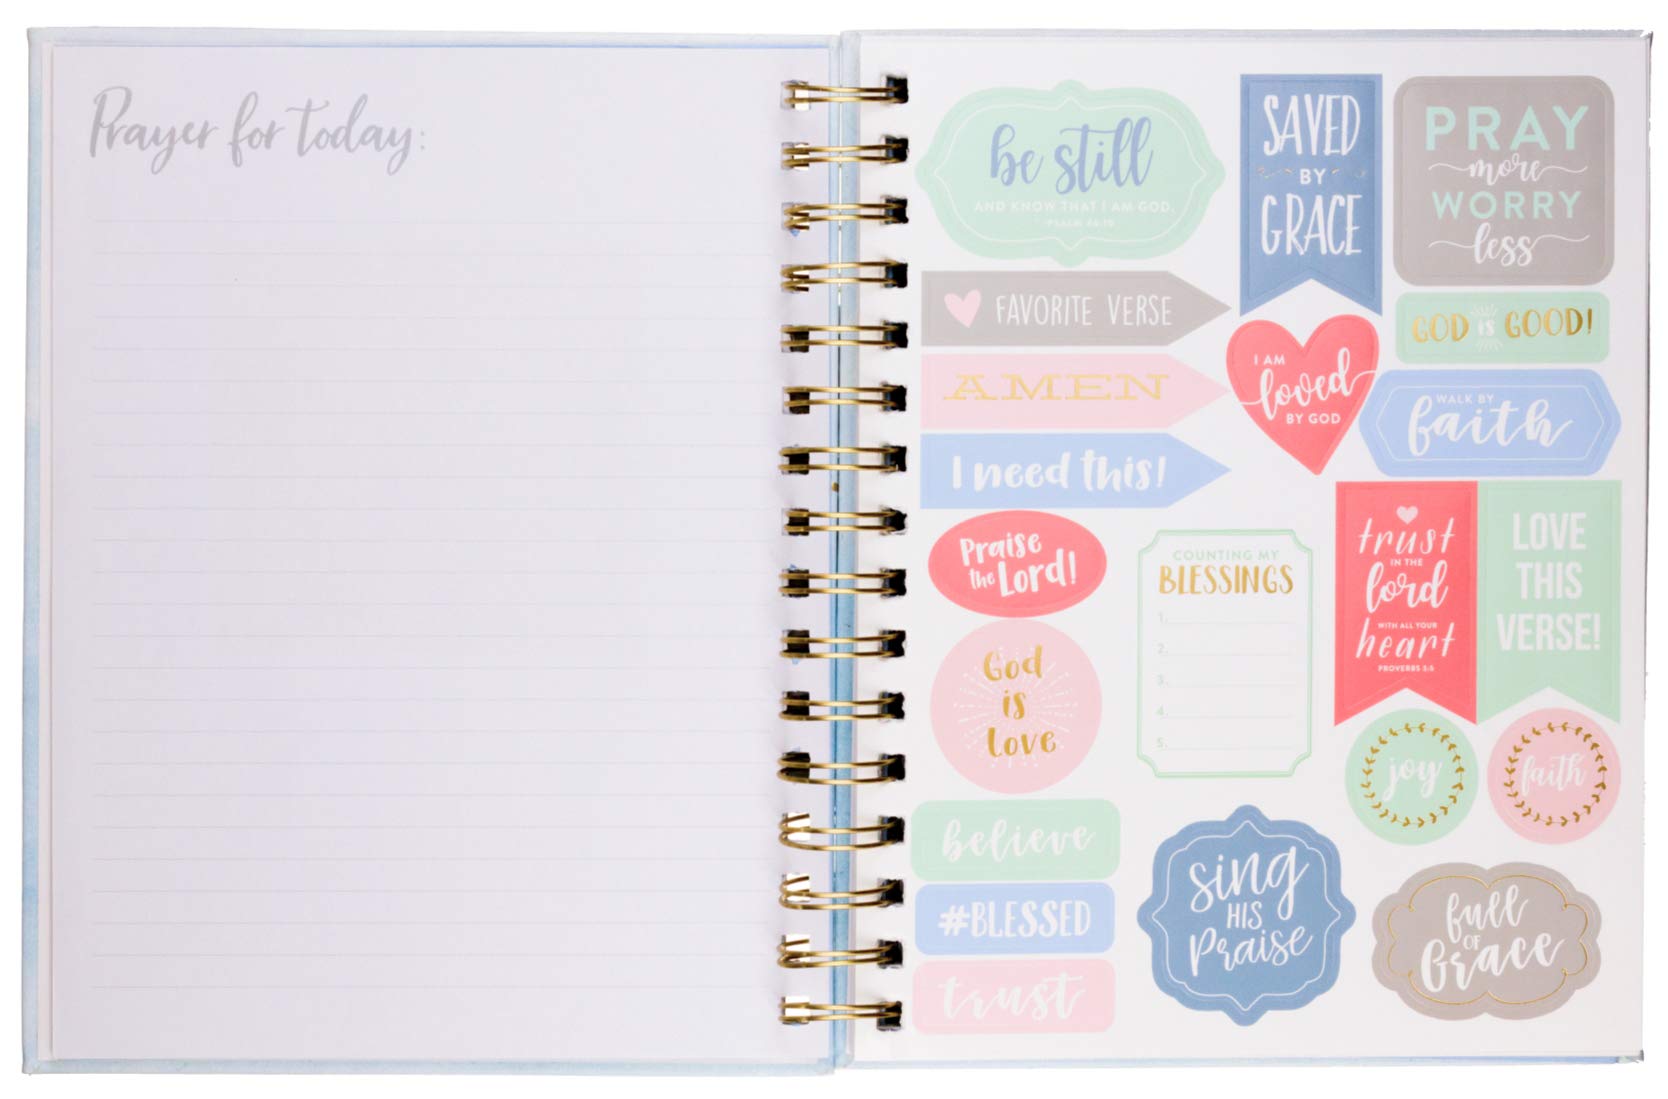 Prayer for today:
be still
AND KNOW THAT I AM GOD.
PSALM 46:10
SAVED
BY
GRACE
PRAY
more
WORRY
less
FAVORITE VERSE
GOD is GOOD!
AMEN
I AM
loved
BY GOD
WALK BY
faith
I need this!
Praise
the Lord!
COUNTING MY
BLESSINGS
1.
2.
3.
4.
5.
trust
IN THE
lord
WITH ALL YOUR
heart
PROVERBS 3:5
LOVE
THIS
VERSE!
God
is
love
joy
faith
believe
#BLESSED
trust
sing
HIS
Praise
full
OF
Grace